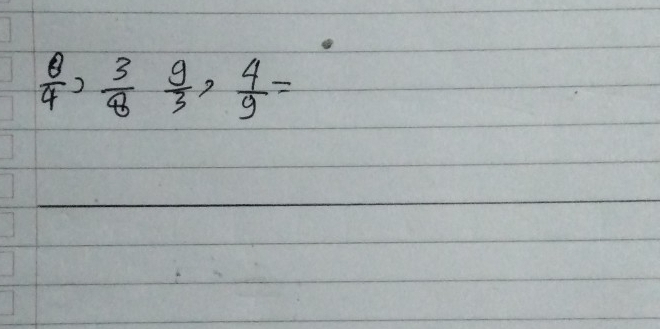 8/4, 3/8 9/3, 4/9 =